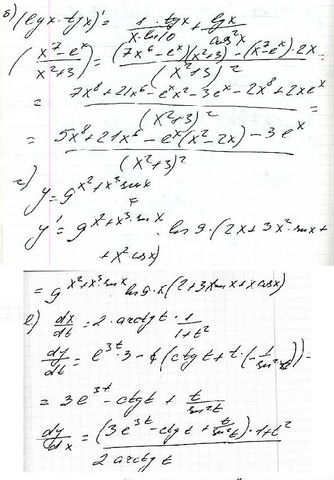 б) (lgx·tgx)' = 1·tgx/(x·ln10) + lgx/cos²x
((x⁷-eˣ)/(x²+3))' = ((7x⁶-eˣ)(x²+3)-(x⁷-eˣ)·2x)/(x²+3)² =
= (7x⁸+21x⁶-eˣx²-3eˣ-2x⁸+2xeˣ)/(x²+3)² =
= (5x⁸+21x⁶-eˣ(x²-2x)-3eˣ)/(x²+3)²
г)
y = 9^(x²+x³·sinx)
y' = 9^(x²+x³·sinx) · ln9·(2x+3x²·sinx+
+x³cosx)
= 9^(x²+x³·sinx) ln9·x(2+3xsinx+xcosx)
е) dx/dt = 2·arctgt·1/(1+t²)
dy/dt = e^(3t)·3-1(ctgt+t·(-1/sin²t)) =
= 3e^(3t)-ctgt+t/sin²t
dy/dx = (3e^(3t)-ctgt+t/sin²t)·1+t²/(2arctgt)